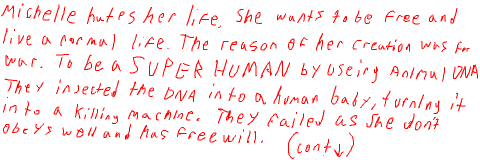 Michelle hates her life. She wants to be free and
live a normal life. The reason of her creation was for
war. To be a SUPER HUMAN by useing Animal DNA
They injected the DNA into a human baby, turning it
into a killing machine. They failed as she don't
obeys well and has free will. (cont↓)